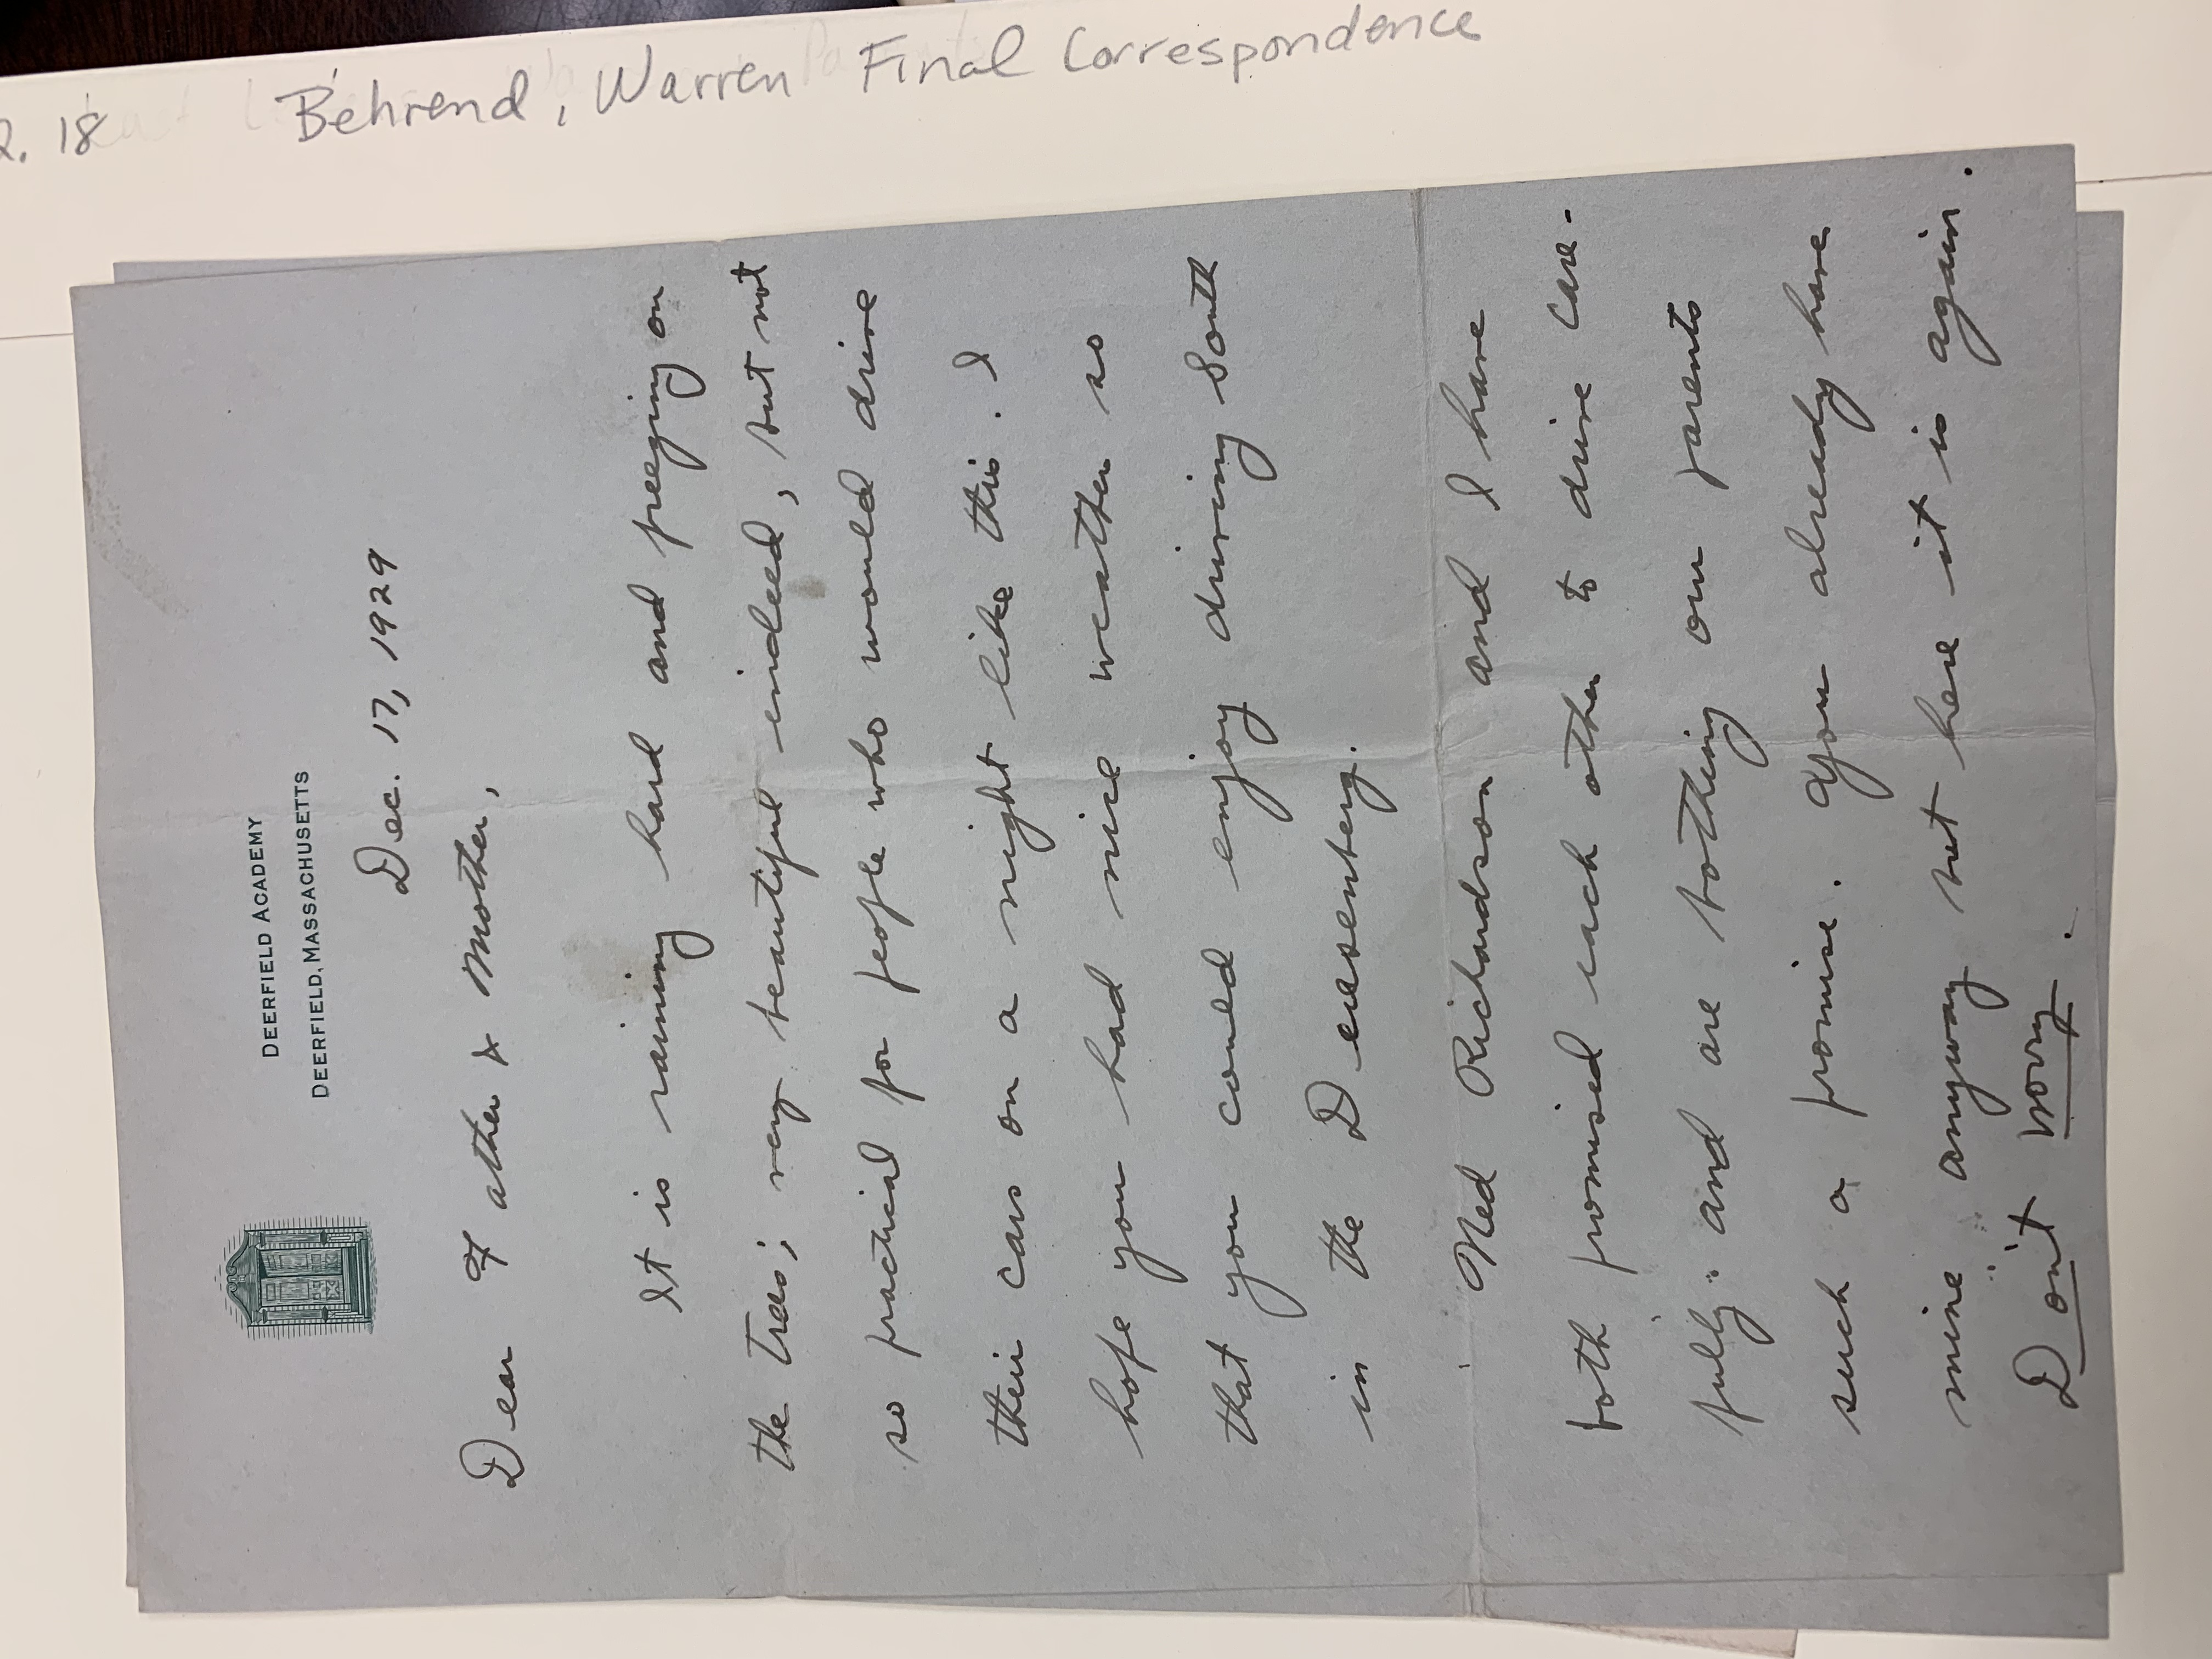 2. 18 Behrend, Warren Final Correspondence
DEERFIELD ACADEMY
DEERFIELD, MASSACHUSETTS
Dec. 17, 1929
Dear Father & Mother,
It is raining hard and freezing on
the trees; very beautiful indeed, but not
so practical for people who would drive
their cars on a night like this. I
hope you had nice weather so
that you could enjoy driving South
in the Duesenberg.
Ned Richardson and I have
both promised each other to drive care-
fully. and are bothing our parents
such a promise. You already have
mine anyway but here it is again.
Don't worry.